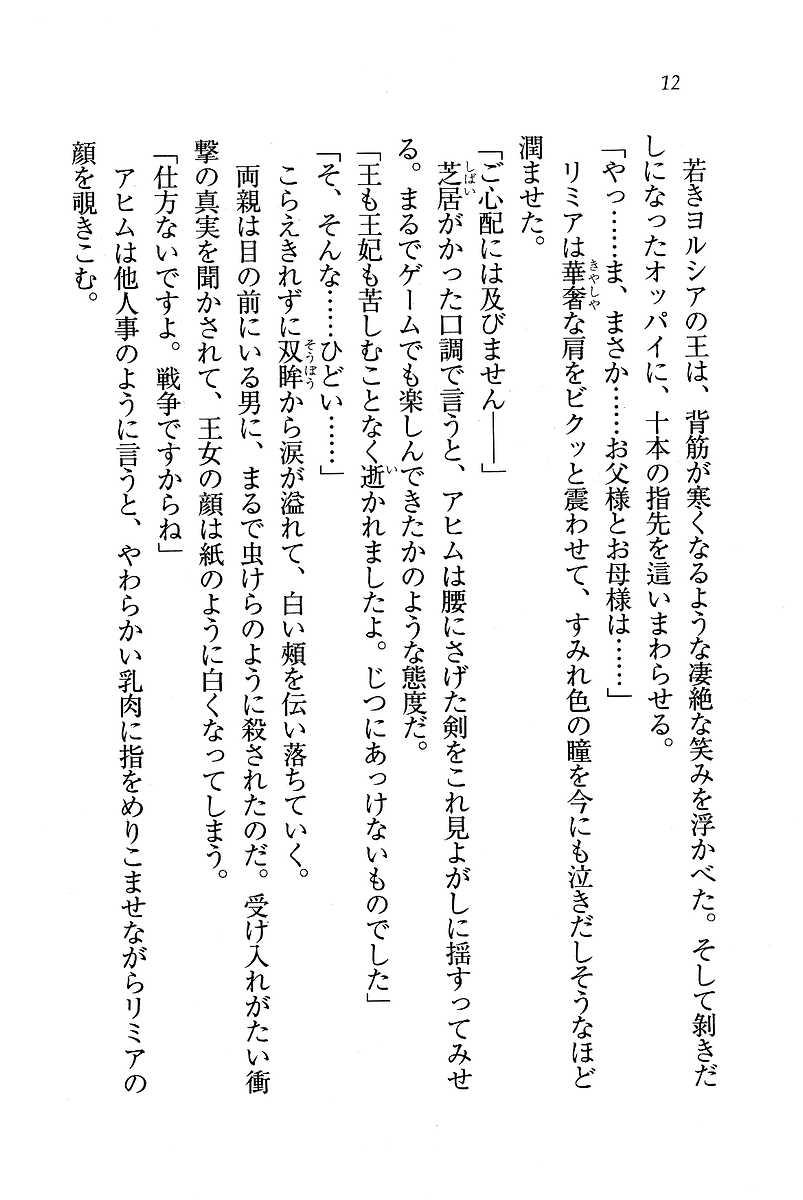 12
若きヨルシアの王は、背筋が寒くなるような凄絶な笑みを浮かべた。そして剝きだ
しになったオッパイに、十本の指先を這いまわらせる。
「やっ……ま、まさか……お父様とお母様は……」
リミアは華奢な肩をビクッと震わせて、すみれ色の瞳を今にも泣きだしそうなほど
きやしや
潤ませた。
「ご心配には及びません――」
芝居がかった口調で言うと、アヒムは腰にさげた剣をこれ見よがしに揺すってみせ
しばい
る。まるでゲームでも楽しんできたかのような態度だ。
「王も王妃も苦しむことなく逝かれましたよ。じつにあっけないものでした」
い
「そ、そんな……ひどい……」
こらえきれずに双眸から涙が溢れて、白い頰を伝い落ちていく。
そうぼう
両親は目の前にいる男に、まるで虫けらのように殺されたのだ。受け入れがたい衝
撃の真実を聞かされて、王女の顔は紙のように白くなってしまう。
「仕方ないですよ。戦争ですからね」
アヒムは他人事のように言うと、やわらかい乳肉に指をめりこませながらリミアの
顔を覗きこむ。